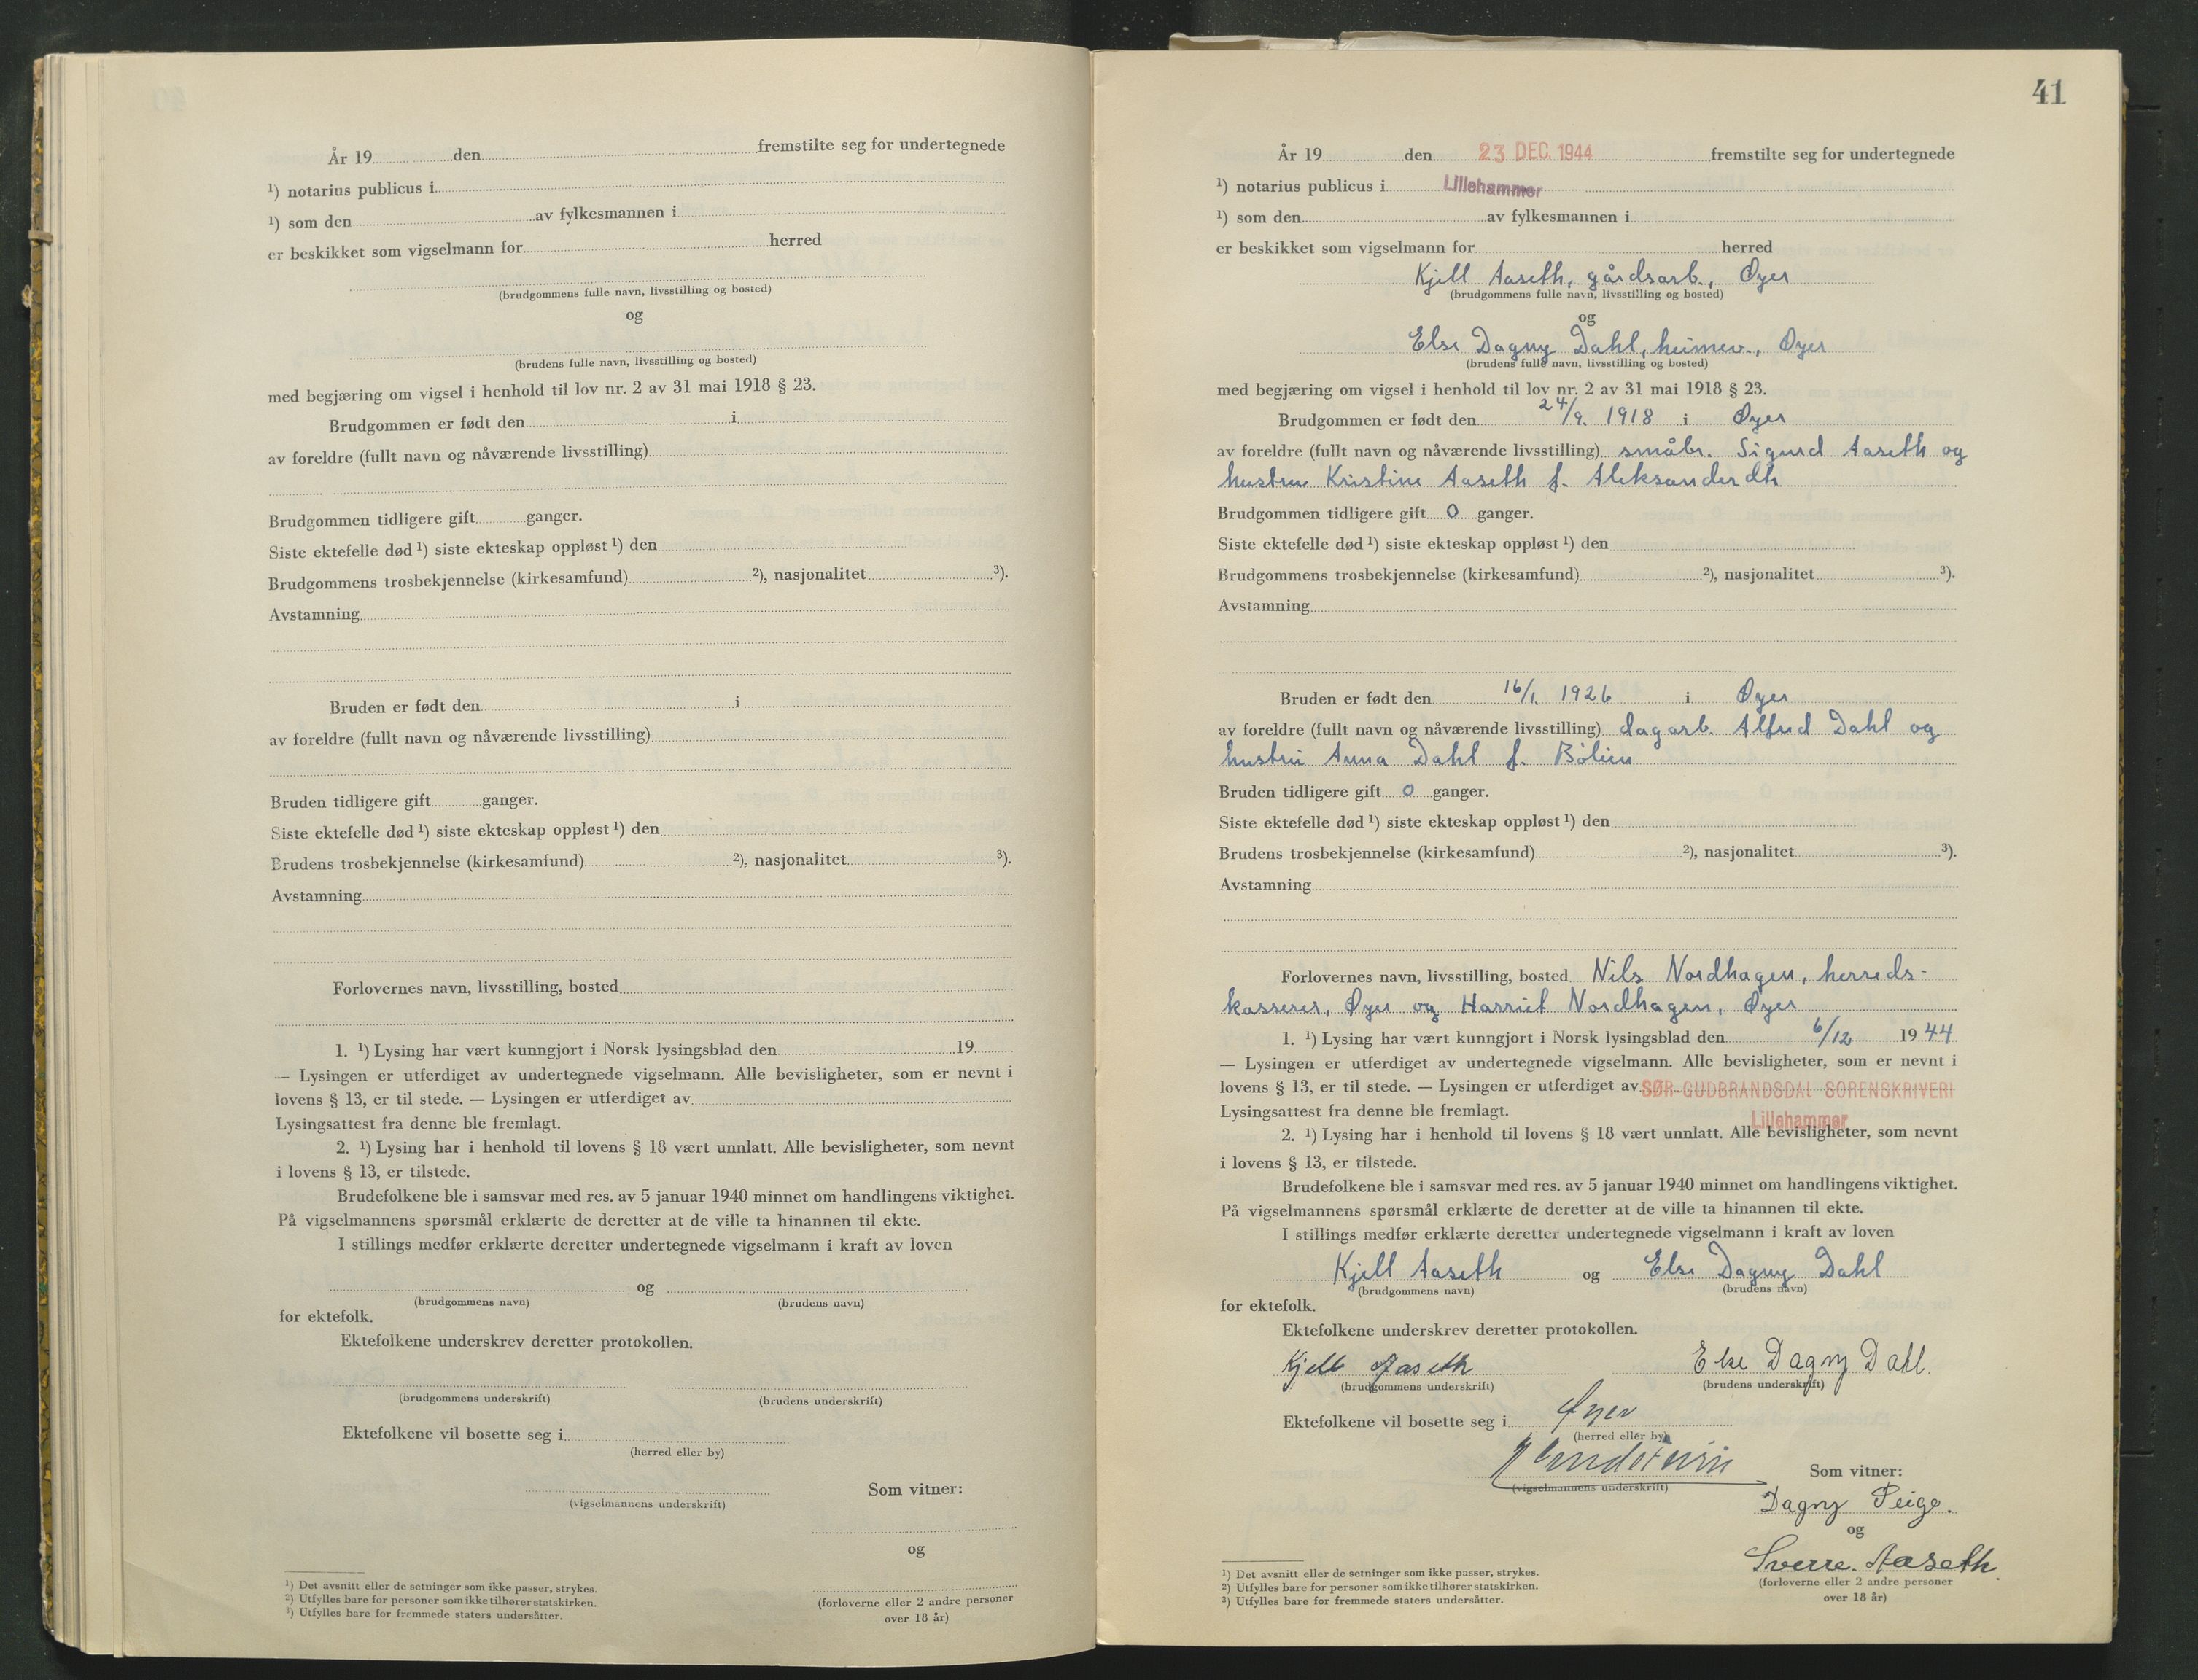 År 19 den fremstilte seg for undertegnede
¹) notarius publicus i
¹) som den av fylkesmannen i
er beskikket som vigselmann for herred
(brudgommens fulle navn, livsstilling og bosted)
og
(brudens fulle navn, livsstilling og bosted)
med begjæring om vigsel i henhold til lov nr. 2 av 31 mai 1918 § 23.
Brudgommen er født den i
av foreldre (fullt navn og nåværende livsstilling)
Brudgommen tidligere gift ganger.
Siste ektefelle død ¹) siste ekteskap oppløst ¹) den
Brudgommens trosbekjennelse (kirkesamfund) ²), nasjonalitet ³).
Avstamning
Bruden er født den i
av foreldre (fullt navn og nåværende livsstilling)
Bruden tidligere gift ganger.
Siste ektefelle død ¹) siste ekteskap oppløst ¹) den
Brudens trosbekjennelse (kirkesamfund) ²), nasjonalitet ³).
Avstamning
Forlovernes navn, livsstilling, bosted
1. ¹) Lysing har vært kunngjort i Norsk lysingsblad den 19
— Lysingen er utferdiget av undertegnede vigselmann. Alle bevisligheter, som er nevnt i
lovens § 13, er til stede. — Lysingen er utferdiget av
Lysingsattest fra denne ble fremlagt.
2. ¹) Lysing har i henhold til lovens § 18 vært unnlatt. Alle bevisligheter, som nevnt
i lovens § 13, er tilstede.
Brudefolkene ble i samsvar med res. av 5 januar 1940 minnet om handlingens viktighet.
På vigselmannens spørsmål erklærte de deretter at de ville ta hinannen til ekte.
I stillings medfør erklærte deretter undertegnede vigselmann i kraft av loven
og
(brudgommens navn) (brudens navn)
for ektefolk.
Ektefolkene underskrev deretter protokollen.
(brudgommens underskrift) (brudens underskrift)
Ektefolkene vil bosette seg i
(herred eller by)
Som vitner:
(vigselmannens underskrift)
og
¹) Det avsnitt eller de setninger som ikke passer, strykes.
²) Utfylles bare for personer som ikke tilhører statskirken.
³) Utfylles bare for fremmede staters undersåtter.
(forloverne eller 2 andre personer
over 18 år)
41
År 19 den 23 DEC. 1944 fremstilte seg for undertegnede
¹) notarius publicus i Lillehammer
¹) som den av fylkesmannen i
er beskikket som vigselmann for herred
Kjell Aaseth, gårdsarb., Øyer
(brudgommens fulle navn, livsstilling og bosted)
og
Else Dagny Dahl, heimev., Øyer
(brudens fulle navn, livsstilling og bosted)
med begjæring om vigsel i henhold til lov nr. 2 av 31 mai 1918 § 23.
Brudgommen er født den 24/9. 1918 i Øyer
av foreldre (fullt navn og nåværende livsstilling) småbr. Sigurd Aaseth og
hustru Kristine Aaseth f. Aleksanderdtr
Brudgommen tidligere gift 0 ganger.
Siste ektefelle død ¹) siste ekteskap oppløst ¹) den
Brudgommens trosbekjennelse (kirkesamfund) ²), nasjonalitet ³).
Avstamning
Bruden er født den 16/1. 1926 i Øyer
av foreldre (fullt navn og nåværende livsstilling) dagarb. Alfred Dahl og
hustru Anna Dahl f. Bølien
Bruden tidligere gift 0 ganger.
Siste ektefelle død ¹) siste ekteskap oppløst ¹) den
Brudens trosbekjennelse (kirkesamfund) ²), nasjonalitet ³).
Avstamning
Forlovernes navn, livsstilling, bosted Nils Nordhagen, herreds-
kasserer, Øyer og Harriet Nordhagen, Øyer
1. ¹) Lysing har vært kunngjort i Norsk lysingsblad den 6/12 1944
— Lysingen er utferdiget av undertegnede vigselmann. Alle bevisligheter, som er nevnt i
lovens § 13, er til stede. — Lysingen er utferdiget av SØR-GUDBRANDSDAL SORENSKRIVERI
Lysingsattest fra denne ble fremlagt. Lillehammer
2. ¹) Lysing har i henhold til lovens § 18 vært unnlatt. Alle bevisligheter, som nevnt
i lovens § 13, er tilstede.
Brudefolkene ble i samsvar med res. av 5 januar 1940 minnet om handlingens viktighet.
På vigselmannens spørsmål erklærte de deretter at de ville ta hinannen til ekte.
I stillings medfør erklærte deretter undertegnede vigselmann i kraft av loven
Kjell Aaseth og Else Dagny Dahl
(brudgommens navn) (brudens navn)
for ektefolk.
Ektefolkene underskrev deretter protokollen.
Kjell Aaseth Else Dagny Dahl.
(brudgommens underskrift) (brudens underskrift)
Ektefolkene vil bosette seg i Øyer
(herred eller by)
Som vitner:
(vigselmannens underskrift)
Dagny
og
Sverre Aaseth.
¹) Det avsnitt eller de setninger som ikke passer, strykes.
²) Utfylles bare for personer som ikke tilhører statskirken.
³) Utfylles bare for fremmede staters undersåtter.
(forloverne eller 2 andre personer
over 18 år)